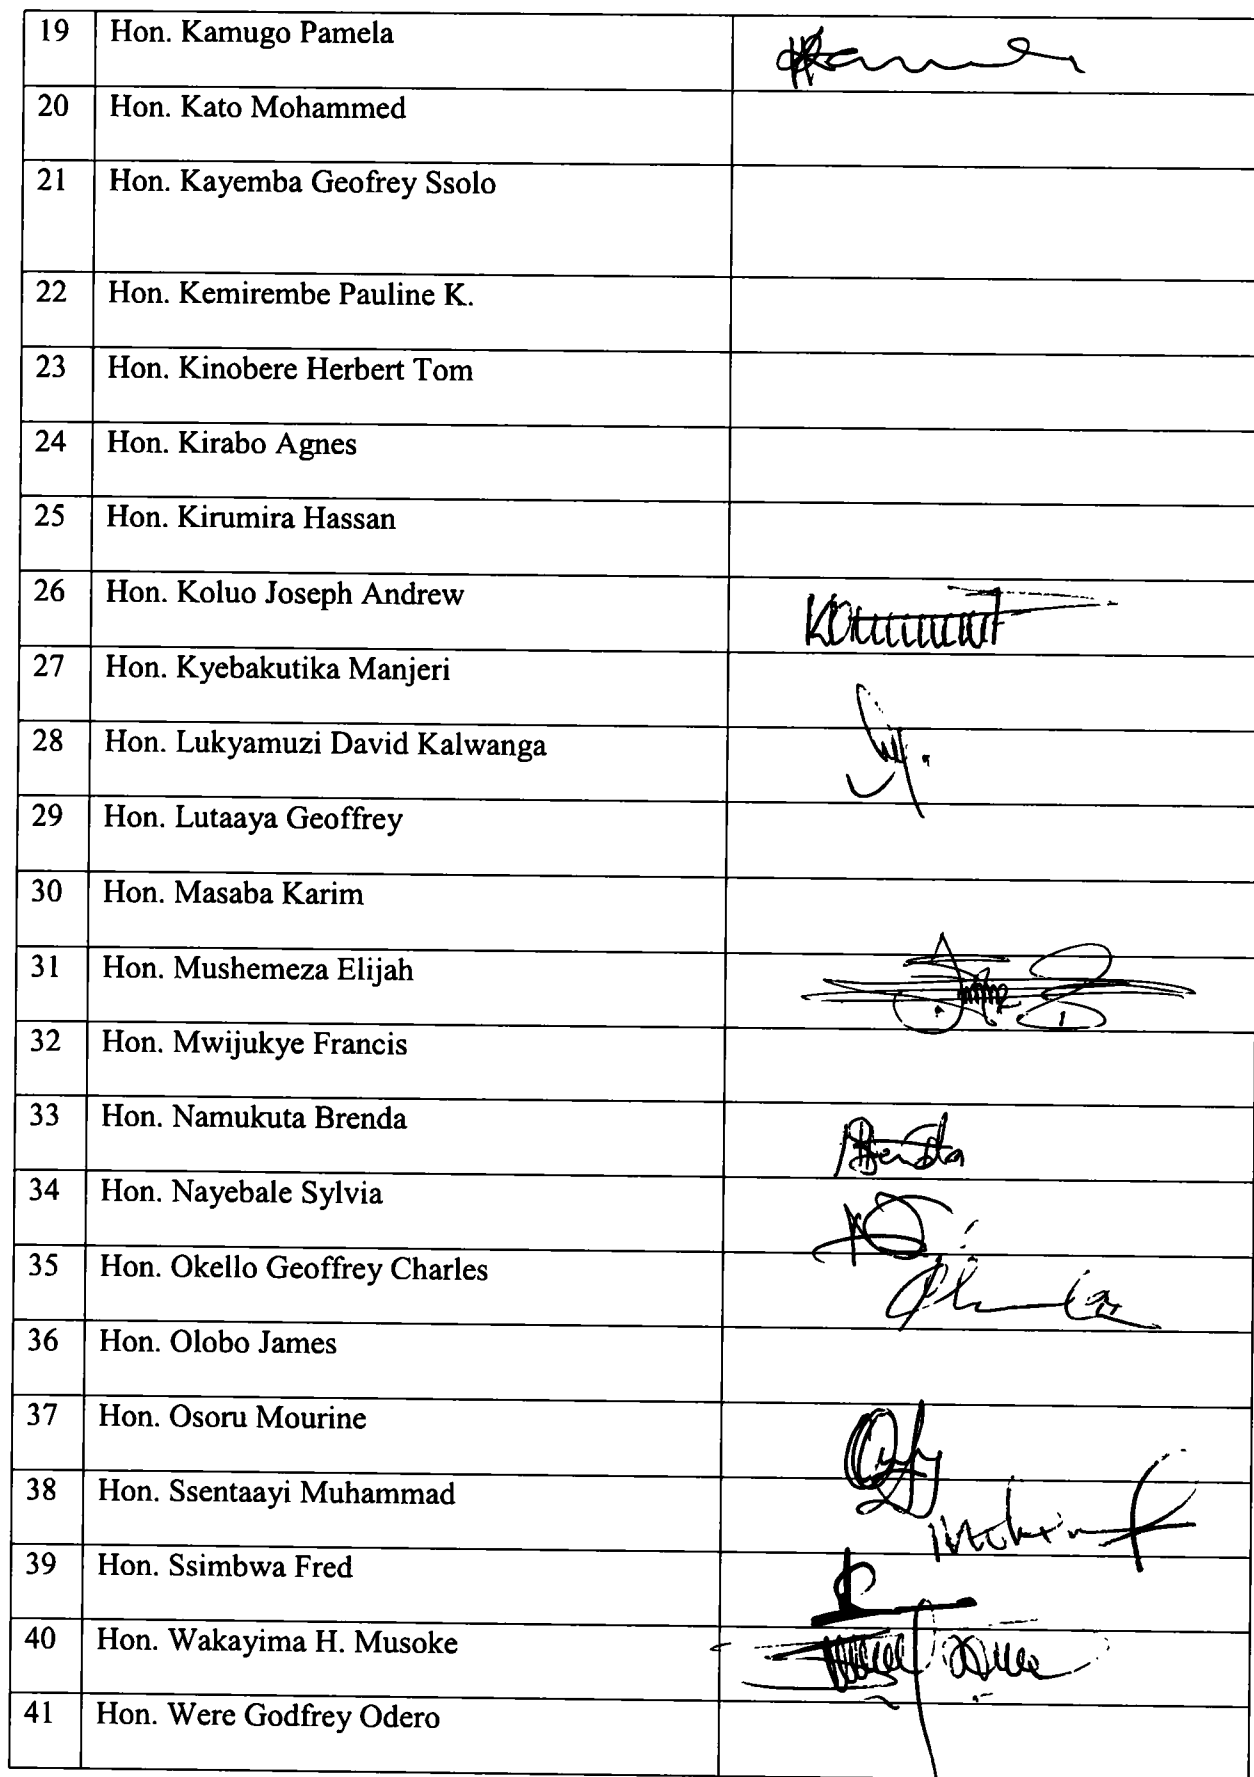 19 Hon. Kamugo Pamela
20 Hon. Kato Mohammed
21 Hon. Kayemba Geofrey Ssolo
22 Hon. Kemirembe Pauline K.
23 Hon. Kinobere Herbert Tom
24 Hon. Kirabo Agnes
25 Hon. Kirumira Hassan
26 Hon. Koluo Joseph Andrew
27 Hon. Kyebakutika Manjeri
28 Hon. Lukyamuzi David Kalwanga
29 Hon. Lutaaya Geoffrey
30 Hon. Masaba Karim
31 Hon. Mushemeza Elijah
32 Hon. Mwijukye Francis
33 Hon. Namukuta Brenda
34 Hon. Nayebale Sylvia
35 Hon. Okello Geoffrey Charles
36 Hon. Olobo James
37 Hon. Osoru Mourine
38 Hon. Ssentaayi Muhammad
39 Hon. Ssimbwa Fred
40 Hon. Wakayima H. Musoke
41 Hon. Were Godfrey Odero